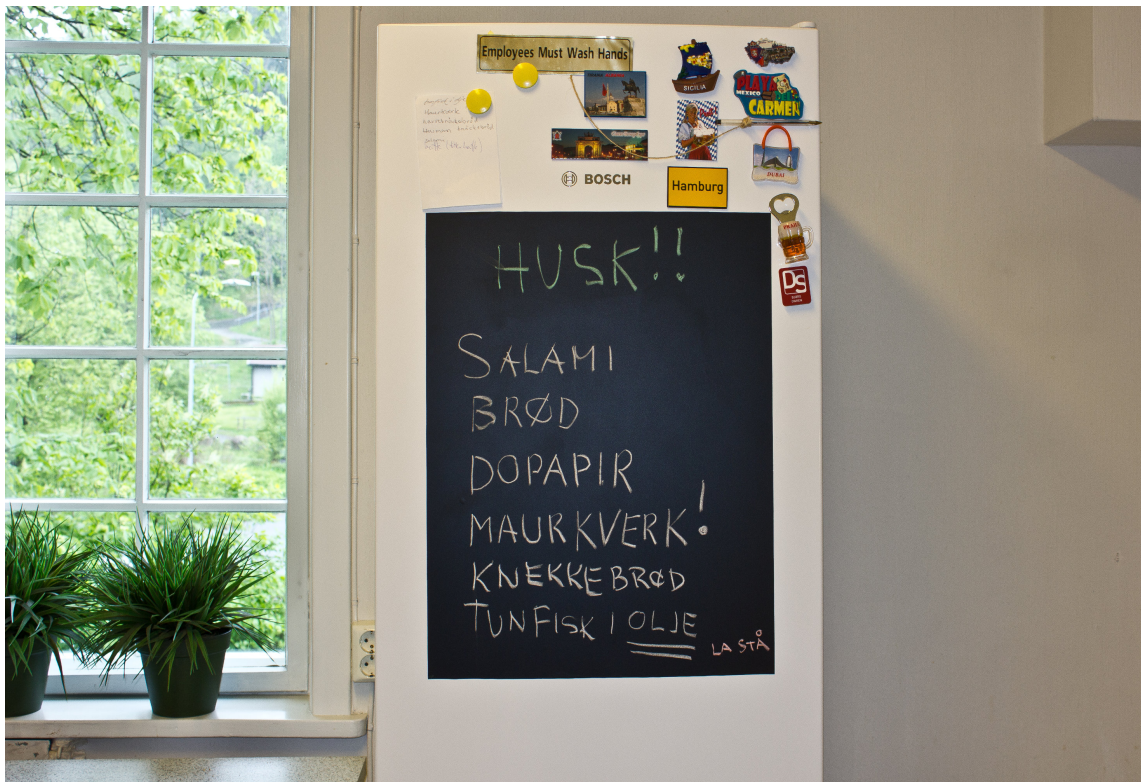 Employees Must Wash Hands
SICILIA
PLAYA
MEXICO
DEL
CARMEN
DUBAI
BOSCH
Hamburg
DS
HUSK!!
SALAMI
BRØD
DOPAPIR
MAURKVERK!
KNEKKEBRØD
TUNFISK I OLJE
LA STÅ